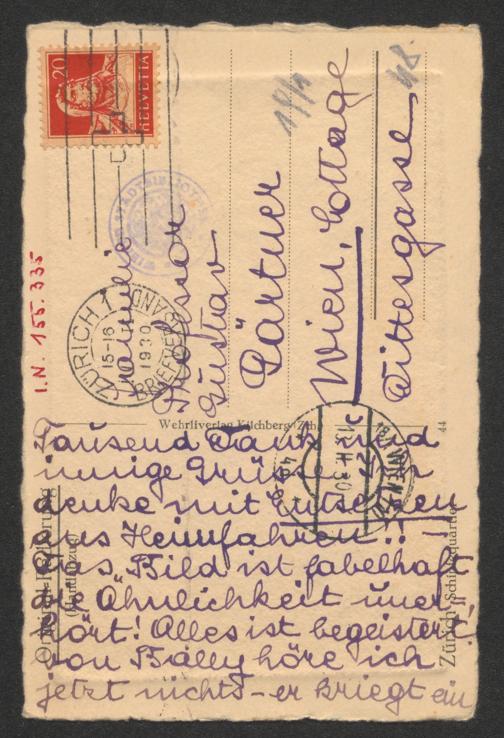 20
HELVETIA
ZÜRICH 1
15-16
1930
BRIEFVERSAND
Familie
Professor
Gustav
Gärtner
Wien, Cottage
Dittesgasse 48
I.N. 155.335
Wehrliverlag Kilchberg (Zch)
44
WIEN
13.II.30
Tausend Dank und
innige Grüsse. Ich
denke mit Entsetzen
ans Heimfahren!!
Das Bild ist fabelhaft
die Ähnlichkeit uner-
hört! Alles ist begeistert!
von Bally höre ich
jetzt nichts – er kriegt ein